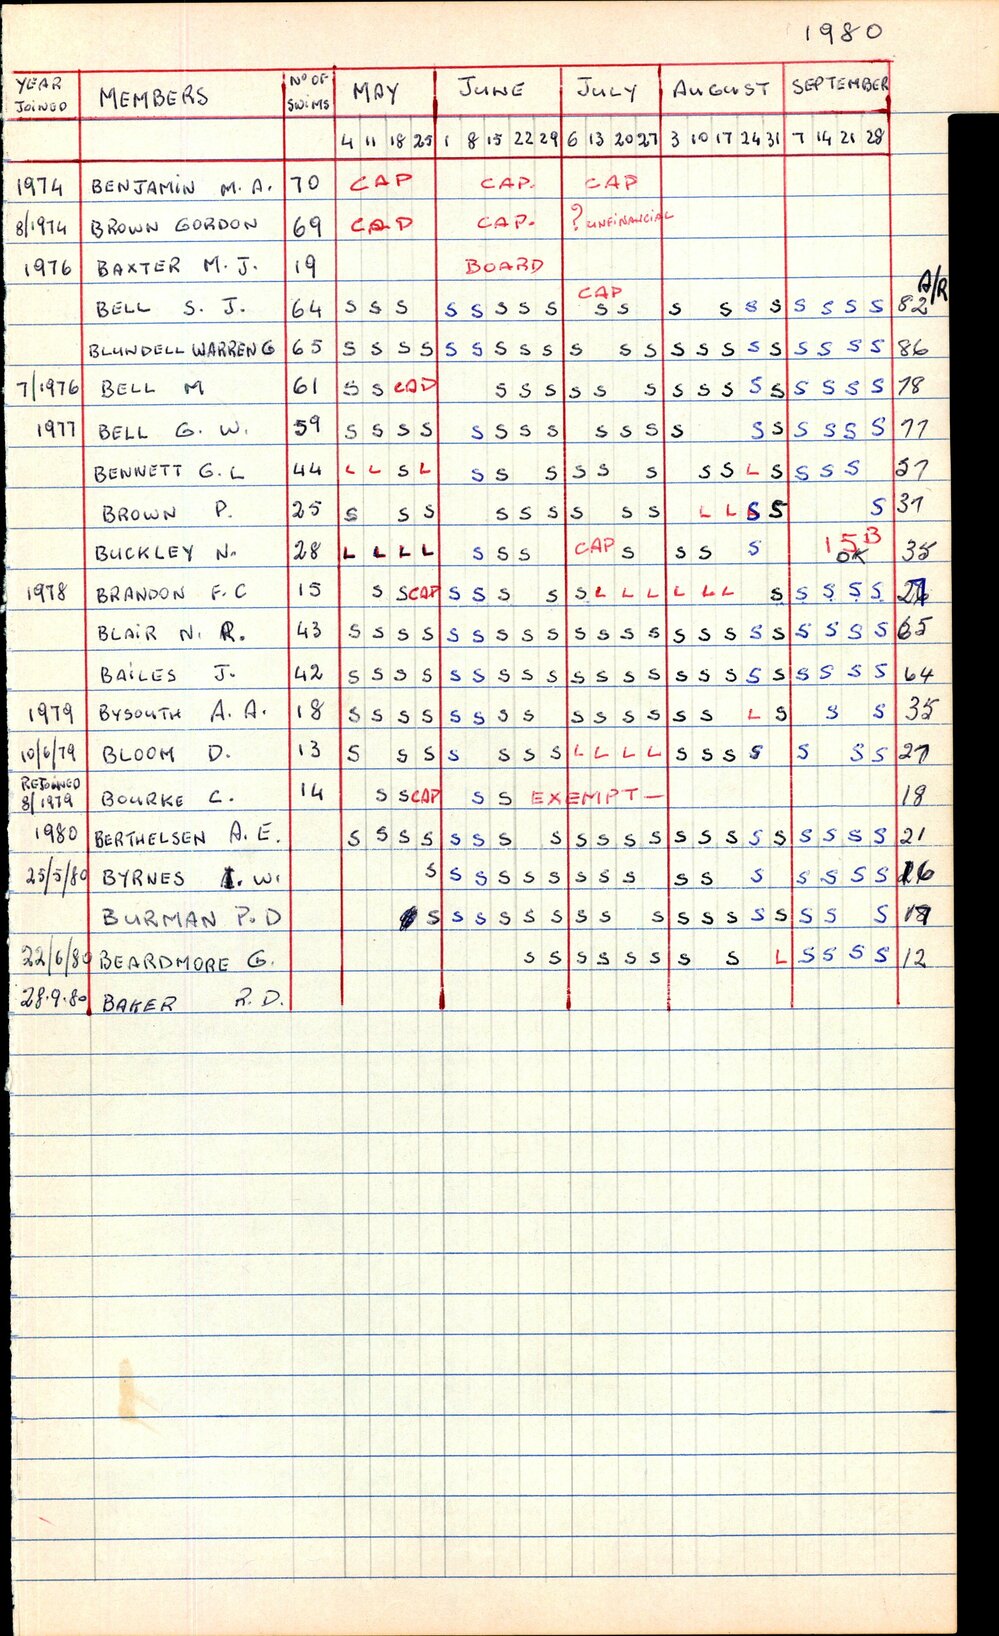 1980
YEAR JOINED MEMBERS Nº OF SWIMS MAY JUNE JULY AUGUST SEPTEMBER
4 11 18 25 1 8 15 22 29 6 13 20 27 3 10 17 24 31 7 14 21 28
1974 BENJAMIN M. A. 70 CAP CAP. CAP
8/1974 BROWN GORDON 69 CAP CAP. ? UNFINANCIAL
1976 BAXTER M. J. 19 BOARD
A/R
BELL S. J. 64 S S S S S S S S CAP S S S S S S S S S S 82
BLUNDELL WARREN G 65 S S S S S S S S S S S S S S S S S S S S S 86
7/1976 BELL M 61 S S CAP S S S S S S S S S S S S S S S 78
1977 BELL G. W. 59 S S S S S S S S S S S S S S S S S S 77
BENNETT G. L 44 L L S L S S S S S S S S L S S S S 57
BROWN P. 25 S S S S S S S S S S L L S S S 37
BUCKLEY N. 28 L L L L S S S CAP S S S S 15 B OK 35
1978 BRANDON F. C 15 S S CAP S S S S S L L L L L L S S S S S
BLAIR N. R. 43 S S S S S S S S S S S S S S S S S S S S S S 65
BAILES J. 42 S S S S S S S S S S S S S S S S S S S S S S 64
1979 BYSOUTH A. A. 18 S S S S S S S S S S S S S S L S S S 35
10/6/79 BLOOM D. 13 S S S S S S S L L L L S S S S S S S 27
REJOINED 8/1979 BOURKE C. 14 S S CAP S S EXEMPT — 18
1980 BERTHELSEN A. E. S S S S S S S S S S S S S S S S S S S S S 21
25/5/80 BYRNES W. S S S S S S S S S S S S S S S S 16
BURMAN P. D S S S S S S S S S S S S S S S S S
22/6/80 BEARDMORE G. S S S S S S S S L S S S S 12
28.9.80 BAKER R. D.